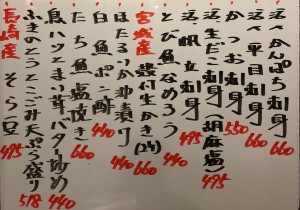 活〆かんぱち刺身 660
活〆平目刺身 660
かつお刺身 550
活生だこ刺身(胡麻塩) 495
活帆立刺身 495
とび魚なめろう 440
宮城産 殻付生かき(2ヶ) 660
ほたるいか沖漬り 440
たち魚塩焼き 660
魚ポン酢 440
鳥ハツとまい茸バター炒め 440
ふきのとうとこごみ天ぷら盛り 518
長崎産 そら豆 495